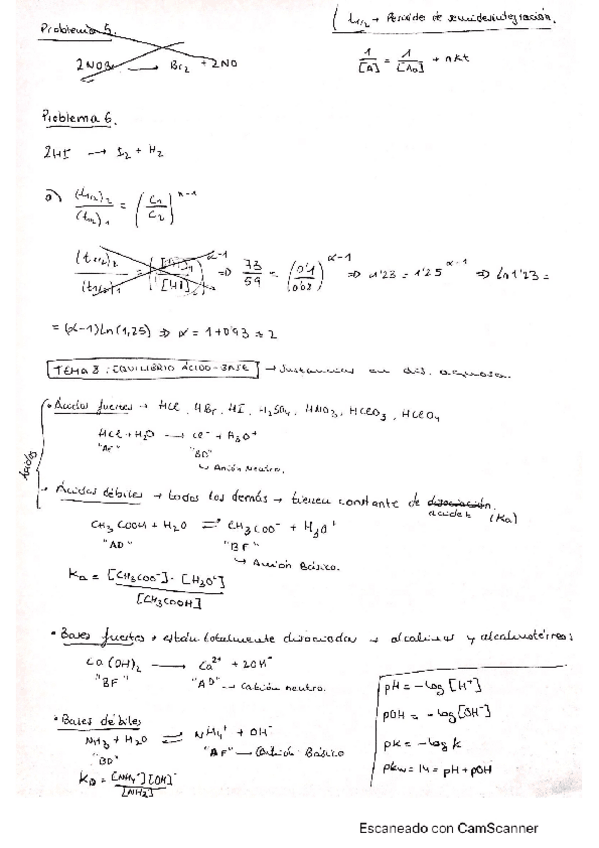 Problema 5.
t1/2 → Periodo de semidesintegración.
2NOBr → Br2 + 2NO
1/[A] = 1/[A0] + nkt
Problema 6.
2HI → I2 + H2
a) (t1/2)2/(t1/2)1 = (C1/C2)^n-1
(t1/2)2/(t1/2)1 = ([HI]1/[HI]2)^α-1 ⇒ 73/59 = (0'1/0'08)^α-1 ⇒ 1'23 = 1'25^α-1 ⇒ ln1'23 =
= (α-1)ln(1,25) ⇒ α = 1+0'93 ≈ 2
TEMA 8: EQUILIBRIO ÁCIDO-BASE → Sustancias en dis. acuosa.
Ácidos
• Ácidos fuertes → HCl, HBr, HI, H2SO4, HNO3, HClO3, HClO4
HCl + H2O → Cl- + H3O+
"AF" "BD"
↳ Anión Neutro.
• Ácidos débiles → todos los demás → tienen constante de disociación.
acidez (Ka)
CH3COOH + H2O ⇌ CH3COO- + H3O+
"AD" "BF"
↳ Anión Básico.
Ka = [CH3COO-]·[H3O+]/[CH3COOH]
• Bases fuertes → están totalmente disociadas → alcalinos y alcalinotérreos
Ca(OH)2 → Ca2+ + 2OH-
"BF" "AD" → Catión neutro.
pH = -log [H+]
pOH = -log [OH-]
pK = -log k
pKw = 14 = pH + pOH
• Bases débiles
NH3 + H2O ⇌ NH4+ + OH-
"BD" "AF" → Catión Básico
Kb = [NH4+][OH]-/[NH3]
Escaneado con CamScanner